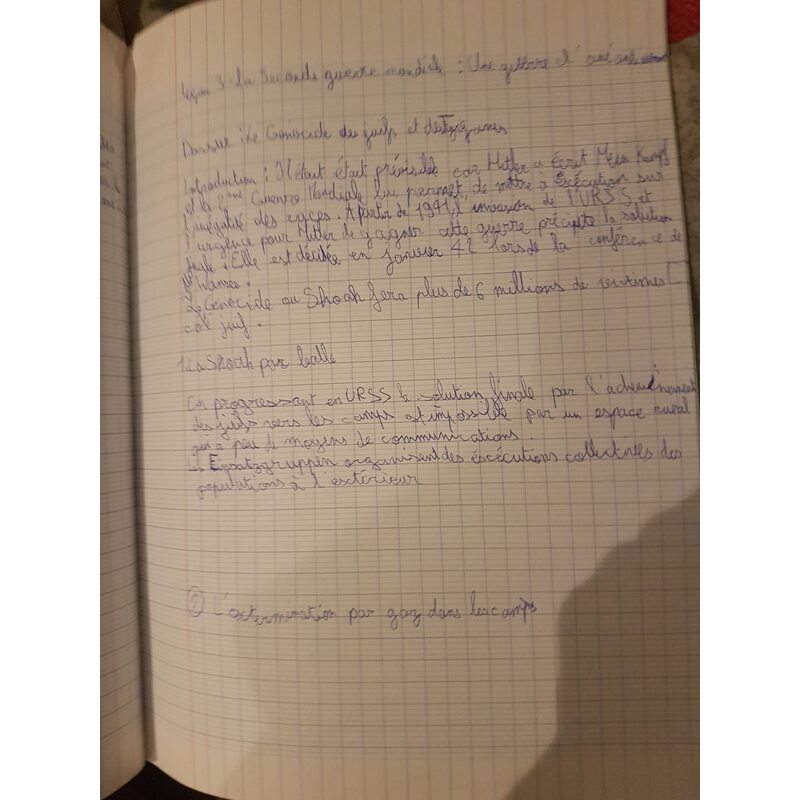 Leçon 3 : la Seconde guerre mondiale : Une guerre d'anéantissement
Dossier : Le Genocide des juifs et des Tziganes
Introduction : Il était était prévisible car Hitler a écrit Mein Kampf
et la 2ème Guerre Mondiale lui permet de mettre à éxécution sur
l'inégalité des races. A partir de 1941, l'invasion de l'URSS et
l'urgence pour Hitler de gagner cette guerre précipite la solution
finale. Elle est décidée en janvier 42 lors de la conférence de
Wansee.
Le Génocide ou Shoah fera plus de 6 millions de victimes
côté juif.
1. La Shoah par balle
En progressant en URSS la solution finale par l'acheminement
des juifs vers les camps est impossible par un espace rural
qui a peu de moyens de communications.
Les Einsatzgruppen organisent des éxécutions collectives des
populations à l'extérieur
② L'extermination par gaz dans les camps